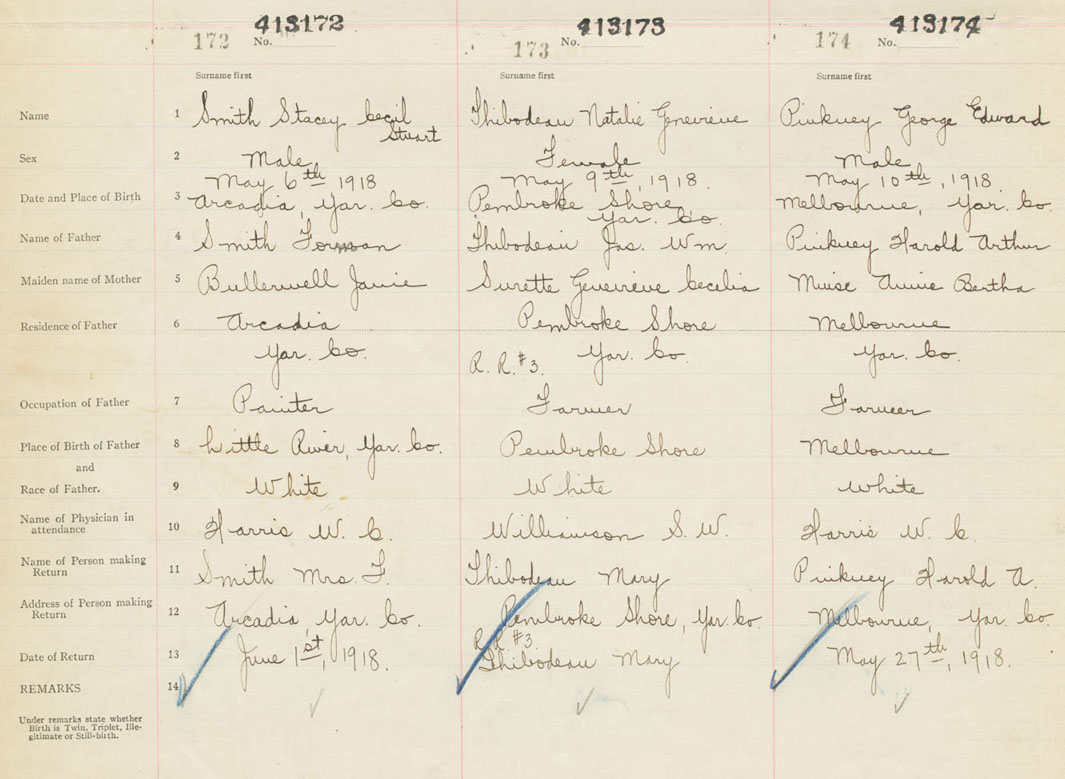 413172 413173 413174
172 No. 173 No. 174 No.
Surname first Surname first Surname first
Name 1 Smith Stacey Cecil Thibodeau Natalie Genevieve Pinkney George Edward
Stuart
Sex 2 Male Female Male
May 6th 1918 May 9th, 1918. May 10th, 1918.
Date and Place of Birth 3 Arcadia, Yar. Co. Pembroke Shore Melbourne, Yar. Co.
Yar. Co.
Name of Father 4 Smith Forman Thibodeau Jas. Wm. Pinkney Harold Arthur
Maiden name of Mother 5 Bullerwell Janie Surette Genevieve Cecelia Muise Annie Bertha
Residence of Father 6 Arcadia Pembroke Shore Melbourne
Yar. Co. R. R. #3. Yar. Co. Yar. Co.
Occupation of Father 7 Painter Farmer Farmer
Place of Birth of Father 8 Little River, Yar. Co. Pembroke Shore Melbourne
and
Race of Father. 9 White White White
Name of Physician in
attendance 10 Harris W. C. Williamson S. W. Harris W. C.
Name of Person making
Return 11 Smith Mrs. F. Thibodeau Mary Pinkney Harold A.
Address of Person making
Return 12 Arcadia, Yar. Co. Pembroke Shore, Yar. Co. Melbourne, Yar. Co.
R. R. #3.
Date of Return 13 June 1st, 1918. Thibodeau Mary May 27th, 1918.
REMARKS 14
Under remarks state whether
Birth is Twin, Triplet, Ille-
gitimate or Still-birth.